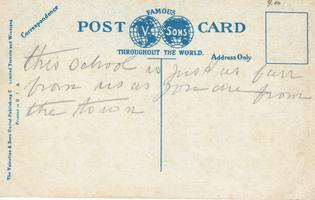 4.00
FAMOUS
POST CARD
V. & SONS
THROUGHOUT THE WORLD.
Correspondence
Address Only
this school is just as far
from us as you are from
the town
The Valentine & Sons United Publishing C Limited Toronto and Winnipeg
Printed in